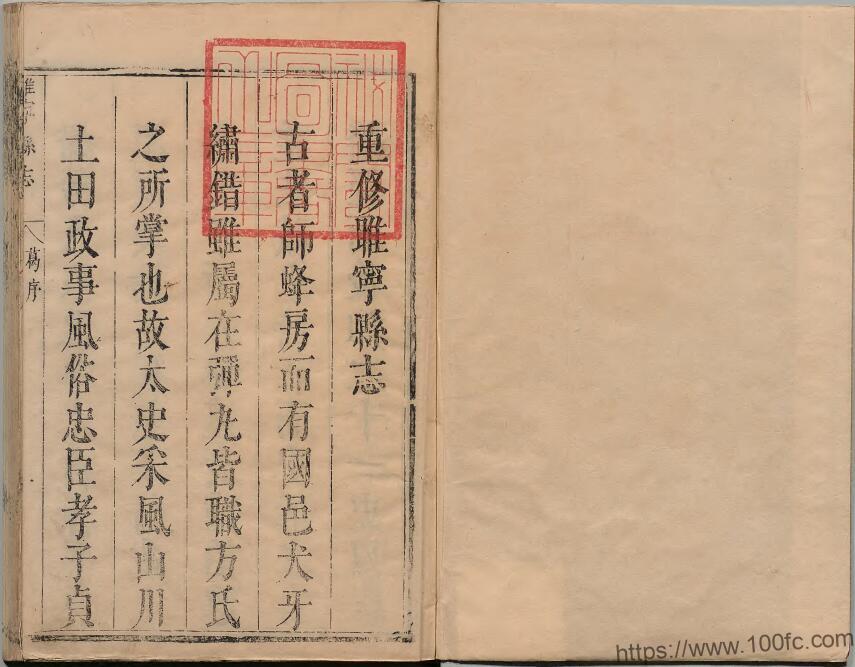 重修睢寧縣志
古者師蜂房而有國邑犬牙
繡錯雖屬在彈丸皆職方氏
之所掌也故太史采風山川
土田政事風俗忠臣孝子貞
睢寧縣志
葛序
https://www.100fc.com